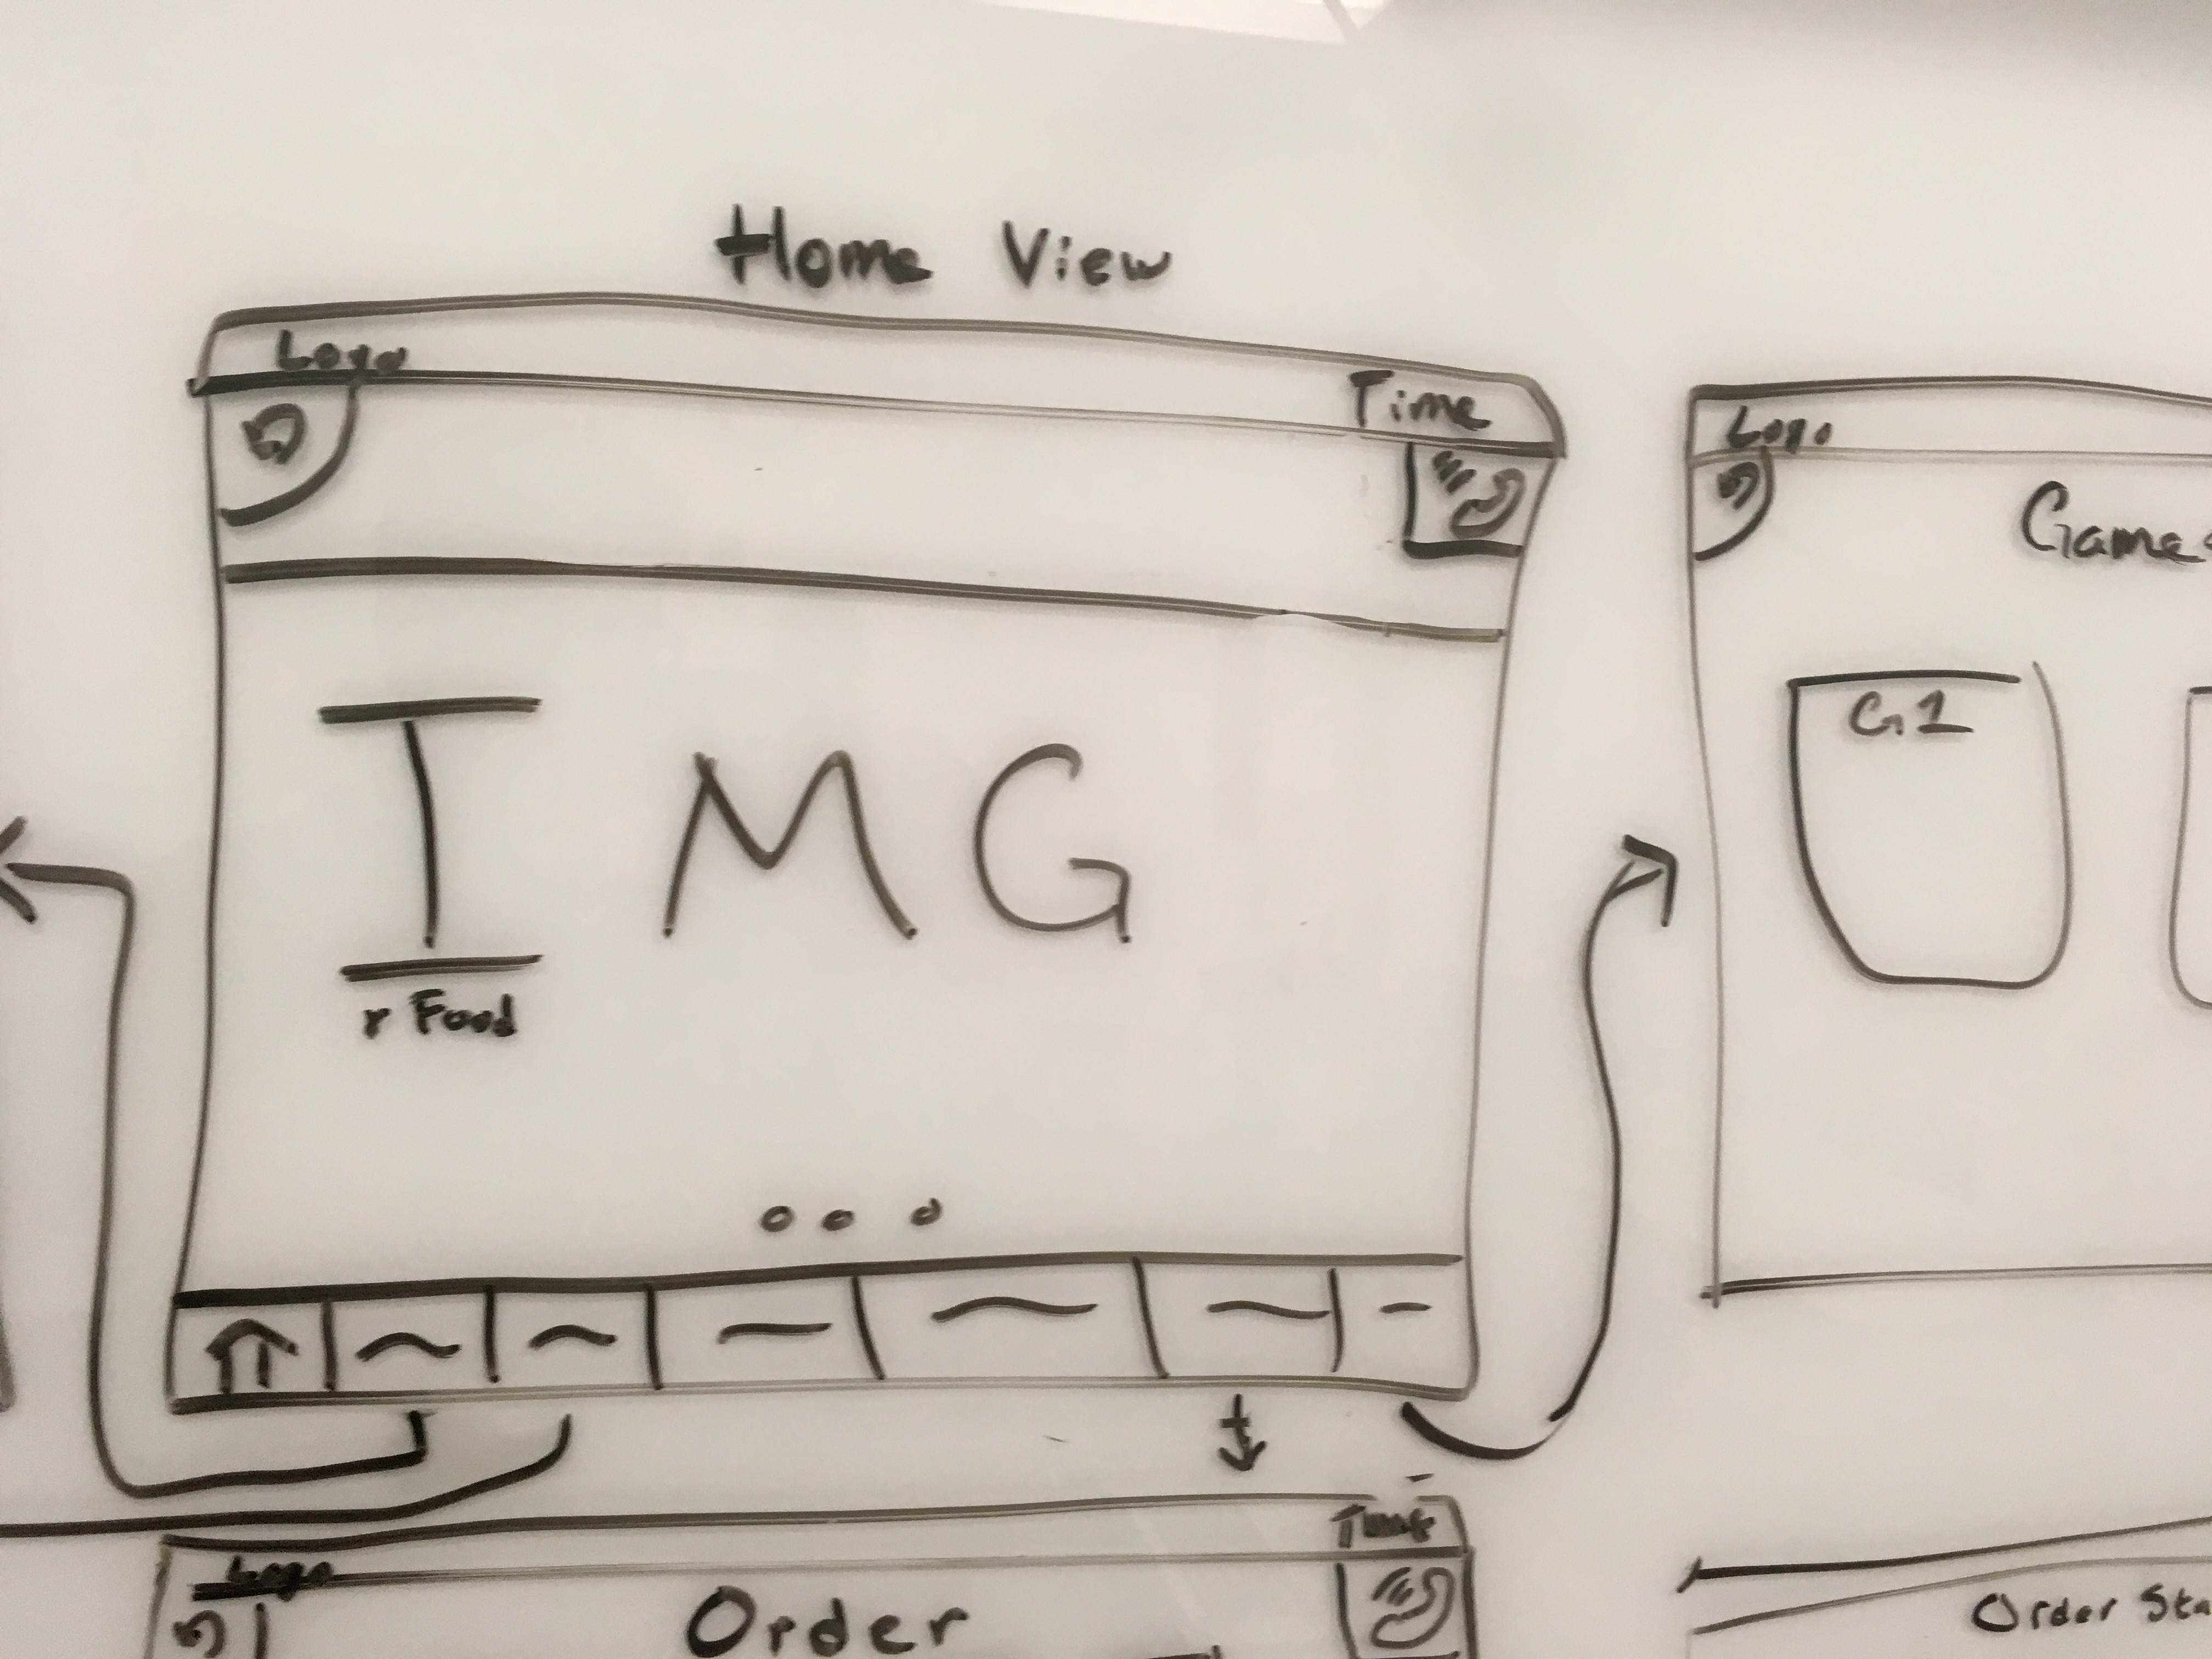 Home View
Logo
Time
IMG
r Food
Logo
Games
G1
Logo
Time
Order
Order Sta